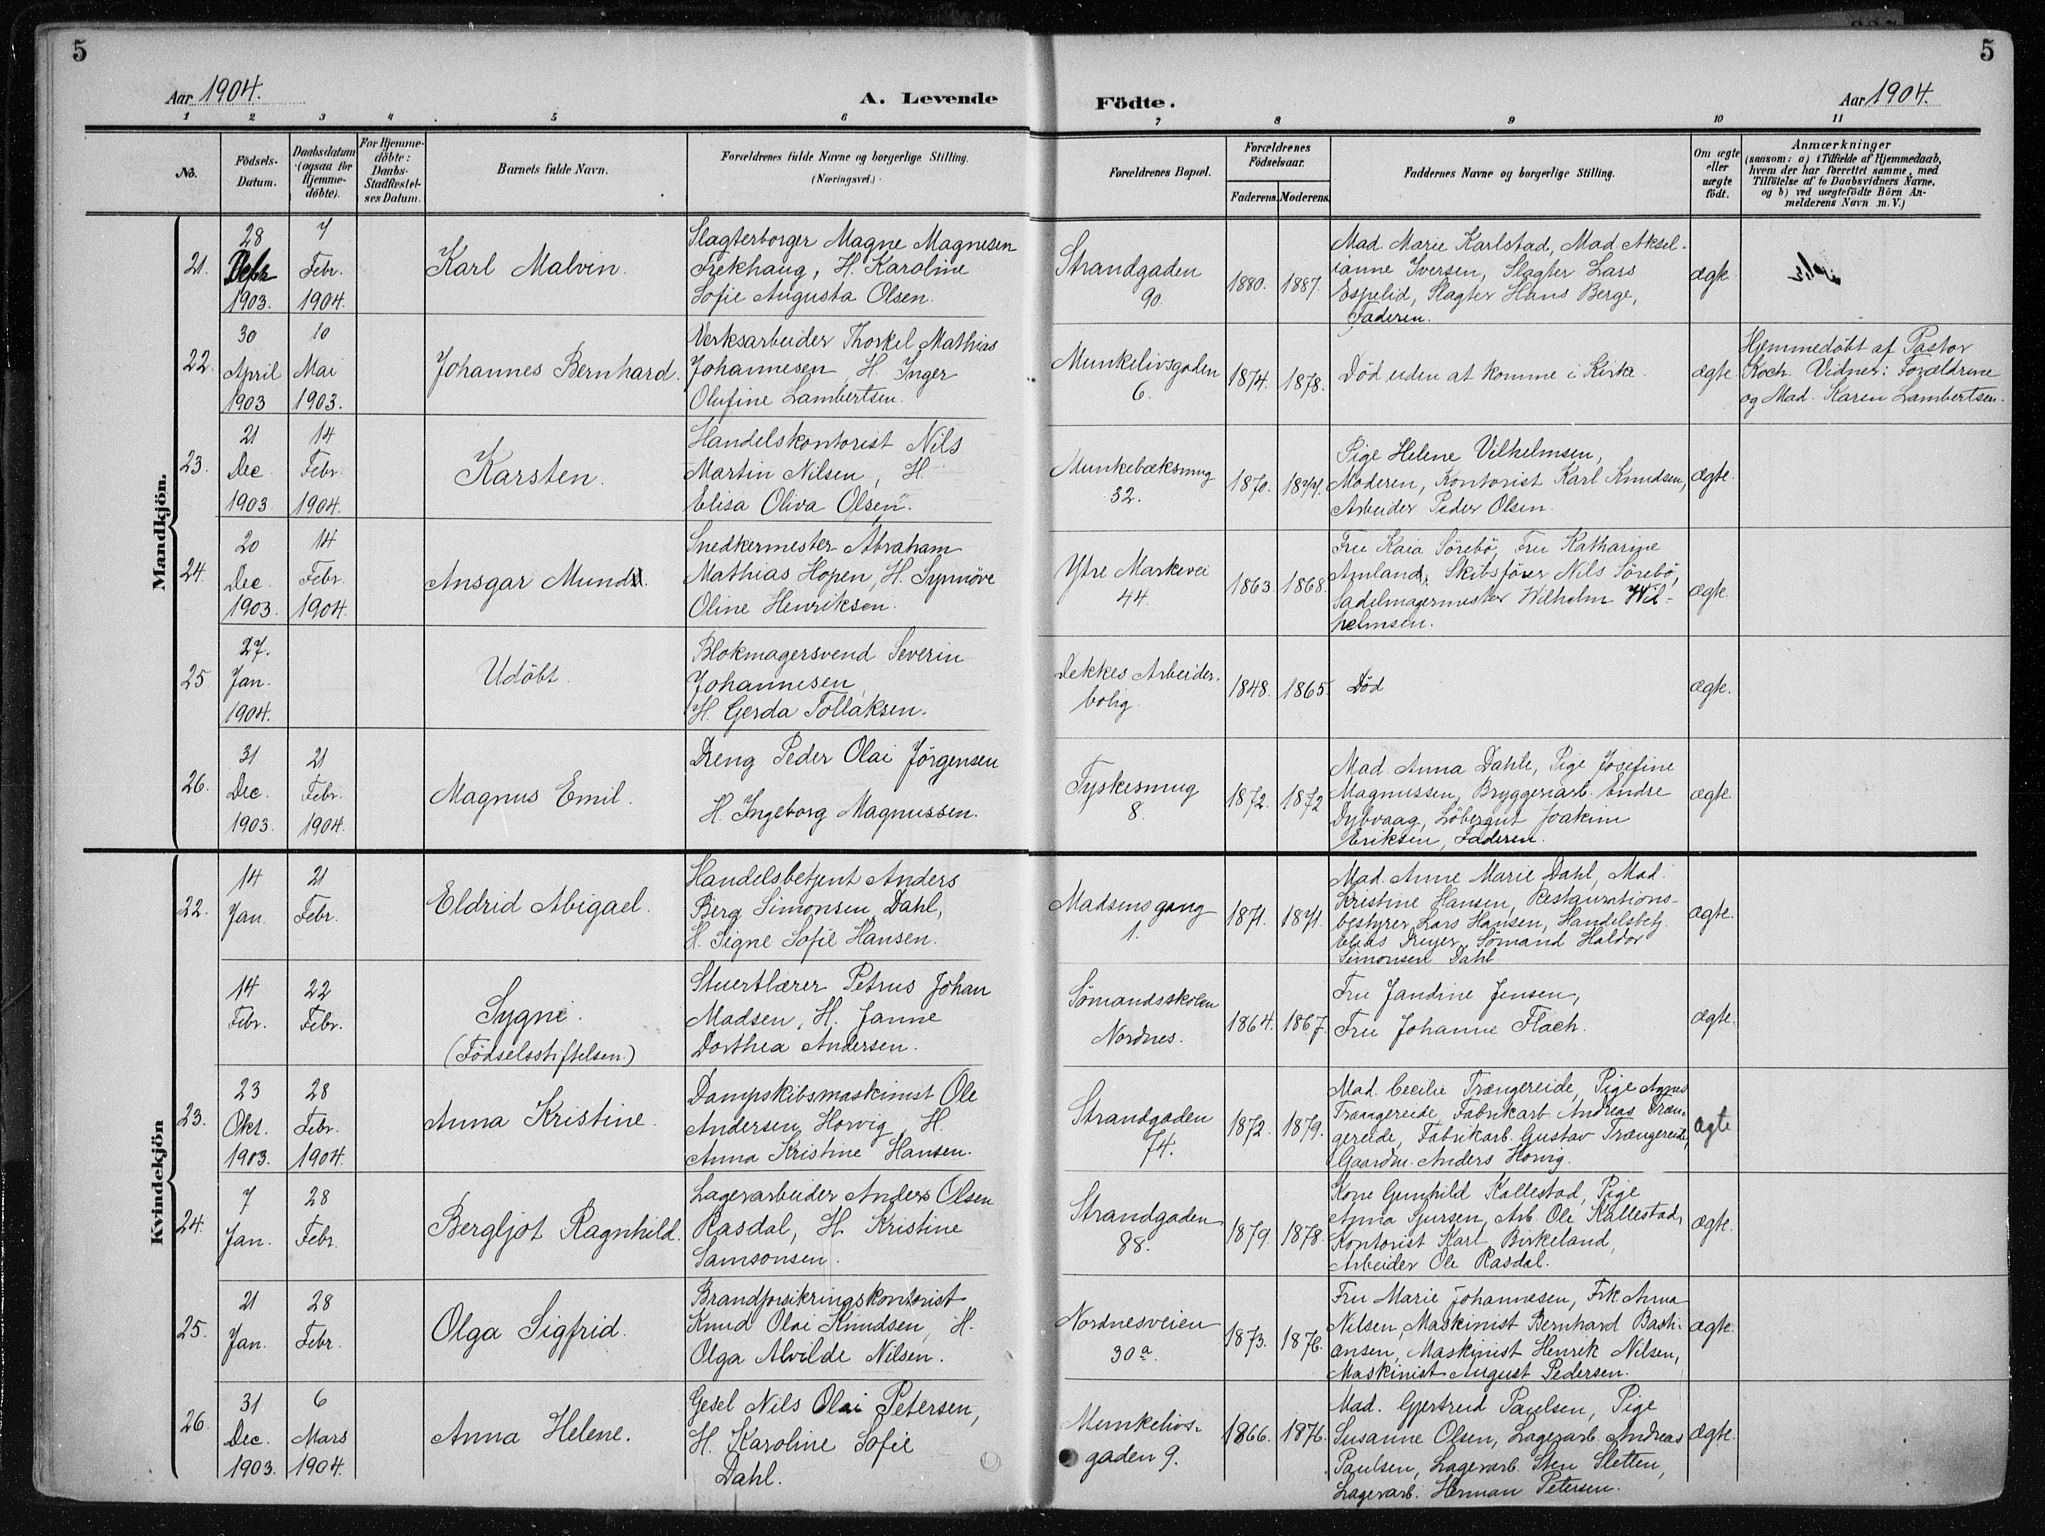 5
5
Aar 1904.
A. Levende
Födte.
Aar 1904.
1 2 3 4 5 6 7 8 9 10 11
No.
Födsels-
Datum.
Daabsdatum
(ogsaa för
Hjemme-
döbte).
For Hjemme-
döbte:
Daabs-
Stadfæstel-
ses Datum.
Barnets fulde Navn.
Forældrenes fulde Navne og borgerlige Stilling.
(Næringsvei.)
Forældrenes Bopæl.
Forældrenes
Födselsaar.
Faderens. Moderens.
Faddernes Navne og borgerlige Stilling.
Om ægte
eller
uægte
födt.
Anmærkninger
(saasom: a) i Tilfælde af Hjemmedaab,
hvem der har forrettet samme, med
Tilföielse af to Daabsvidners Navne,
og b) ved uægtefödte Börn An-
melderens Navn m. V.)
Mandkjön.
21.
28
Debr
1903.
7
Febr.
1904.
Karl Malvin.
Slagterborger Magne Magnesen
Frekhaug, H. Karoline
Sofie Augusta Olsen.
Strandgaden
90.
1880. 1887.
Mad. Marie Karlstad, Mad. Aksel-
ianne Iversen, Slagter Lars
Espelid, Slagter Hans Berge,
Faderen.
ægte
22.
30
April
1903
10
Mai
1903.
Johannes Bernhard.
Verksarbeider Thorkel Mathias
Johannesen, H. Inger
Olufine Lambertsen.
Munkelivsgaden
6.
1874. 1878.
Död uden at komme i Kirke.
ægte
Hjemmedöbt af Pastor
Koch. Vidner: Forældrene
og Mad. Karen Lambertsen.
23.
21
Dec
1903
14
Febr.
1904.
Karsten.
Handelskontorist Nils
Martin Nilsen, H.
Elisa Oliva Olsen.
Munkebæksmug
32.
1870. 1877.
Pige Helene Vilhelmsen,
Moderen, Kontorist Karl Knudsen,
Arbeider Peder Olsen.
ægte.
24.
20
Dec.
1903.
14
Febr.
1904.
Ansgar Mund
Snedkermester Abraham
Mathias Hopen, H. Synnöve
Oline Henriksen.
Ytre Markevei
44.
1863. 1868.
Fru Kaia Sörebö, Fru Katharine
Amland, Skibsförer Nils Sörebö,
Sadelmagermester Wilhelm Wil-
helmsen.
ægte.
25.
27.
Jan.
1904.
Udöbt.
Blokmagersvend Severin
Johannesen,
H. Gerda Tollaksen.
Dekkes Arbeider-
bolig
1848. 1865.
Död
ægte.
26.
31
Dec.
1903.
21
Febr.
1904.
Magnus Emil.
Dreng Peder Olai Jörgensen
H. Ingeborg Magnussen.
Tyskesmug
8.
1872. 1872
Mad. Anna Dahle, Pige Josefine
Magnussen, Bryggeriarb. Andre
Dybvaag, Löbergut Joakim
Eriksen, Faderen.
ægte
Kvindekjön
22.
14
Jan.
21
Febr.
Eldrid Abigael.
Handelsbetjent Anders
Berg Simonsen Dahl,
H. Signe Sofie Hansen.
Madsensgang
1.
1871. 1871.
Mad. Anne Marie Dahl, Mad.
Kristine Hansen, Restaurations-
bestyrer Lars Hansen, Handelsbetj.
Claus Dreyer, Sömand Haldor
Simonsen Dahl.
ægte.
14
Febr.
22
Febr.
Sygni.
(Födselsstiftelsen.)
Stuertlærer Petrus Johan
Madsen, H. Janne
Dorthea Andersen.
Sömandsskolen
Nordnes.
1864. 1867.
Fru Jandine Jensen,
Fru Johanne Flach.
ægte.
23.
23
Okt.
1903.
28
Febr.
1904.
Anna Kristine.
Dampskibsmaskinist Ole
Andersen Horvig, H.
Anna Kristine Hansen.
Strandgaden
74.
1872. 1879.
Mad. Cecilie Trængereide, Pige Agnes
Trængereide, Fabrikarb. Andreas Træn-
gereide, Fabrikarb. Gustav Trængereide,
Gaardm. Anders Horvig.
ægte
24.
7
Jan.
28
Febr.
Bergljot Ragnhild.
Lagerarbeider Anders Olsen
Rasdal, H. Kristine
Samsonsen.
Strandgaden
88.
1879. 1878.
Kone Gunhild Kallestad, Pige
Anna Sjursen, Arb. Ole Kallestad,
Kontorist Karl Birkeland,
Arbeider Ole Rasdal.
ægte.
25.
21
Jan.
28
Febr.
Olga Sigfrid.
Brandforsikringskontorist
Knud Olai Knudsen, H.
Olga Alvilde Nilsen.
Nordnesveien
30a.
1873. 1876.
Fru Marie Johannesen, Frk Anna
Nilsen, Maskinist Bernhard Basti-
ansen, Maskinist Henrik Nilsen,
Maskinist August Pedersen.
ægte.
26.
31
Dec.
1903.
6
Mars
1904.
Anna Helene.
Gesel Nils Olai Petersen,
H. Karoline Sofie
Dahl.
Munkelivs-
gaden 9.
1866. 1876.
Mad. Gjertrud Paulsen, Pige
Susanne Olsen, Lagerarb. Andreas
Paulsen, Lagerarb. Sten Sletten,
Lagerarb. Herman Petersen.
ægte.